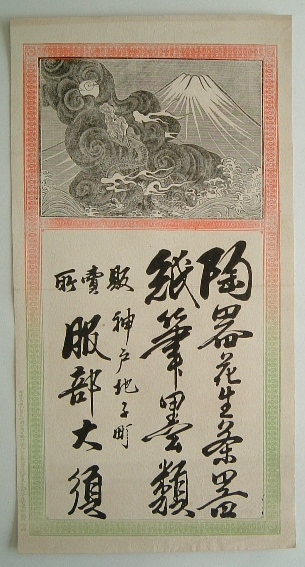 陶器花生茶器
紙筆墨類
販賣所
神戸地子町
服部大須